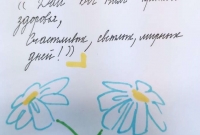 "Дай Вам Бог
здоровья,
Счастливых, светлых, мирных
дней!"